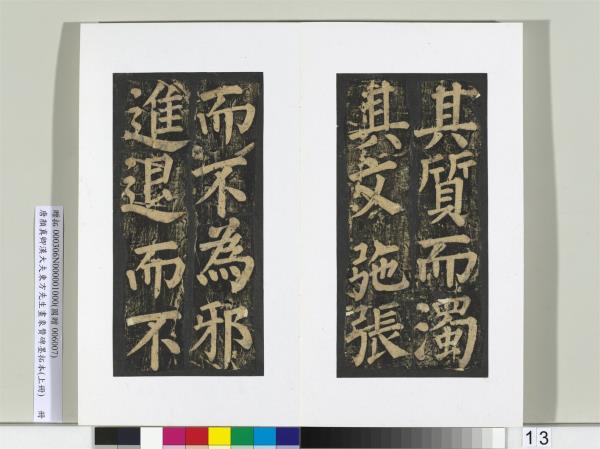 其質而濁
其文弛張
而不為邪
進退而不
贈拓 000306N000001000(國贈 006007)
唐顏真卿漢大夫東方先生畫象贊碑墨拓本(上冊) 冊
13